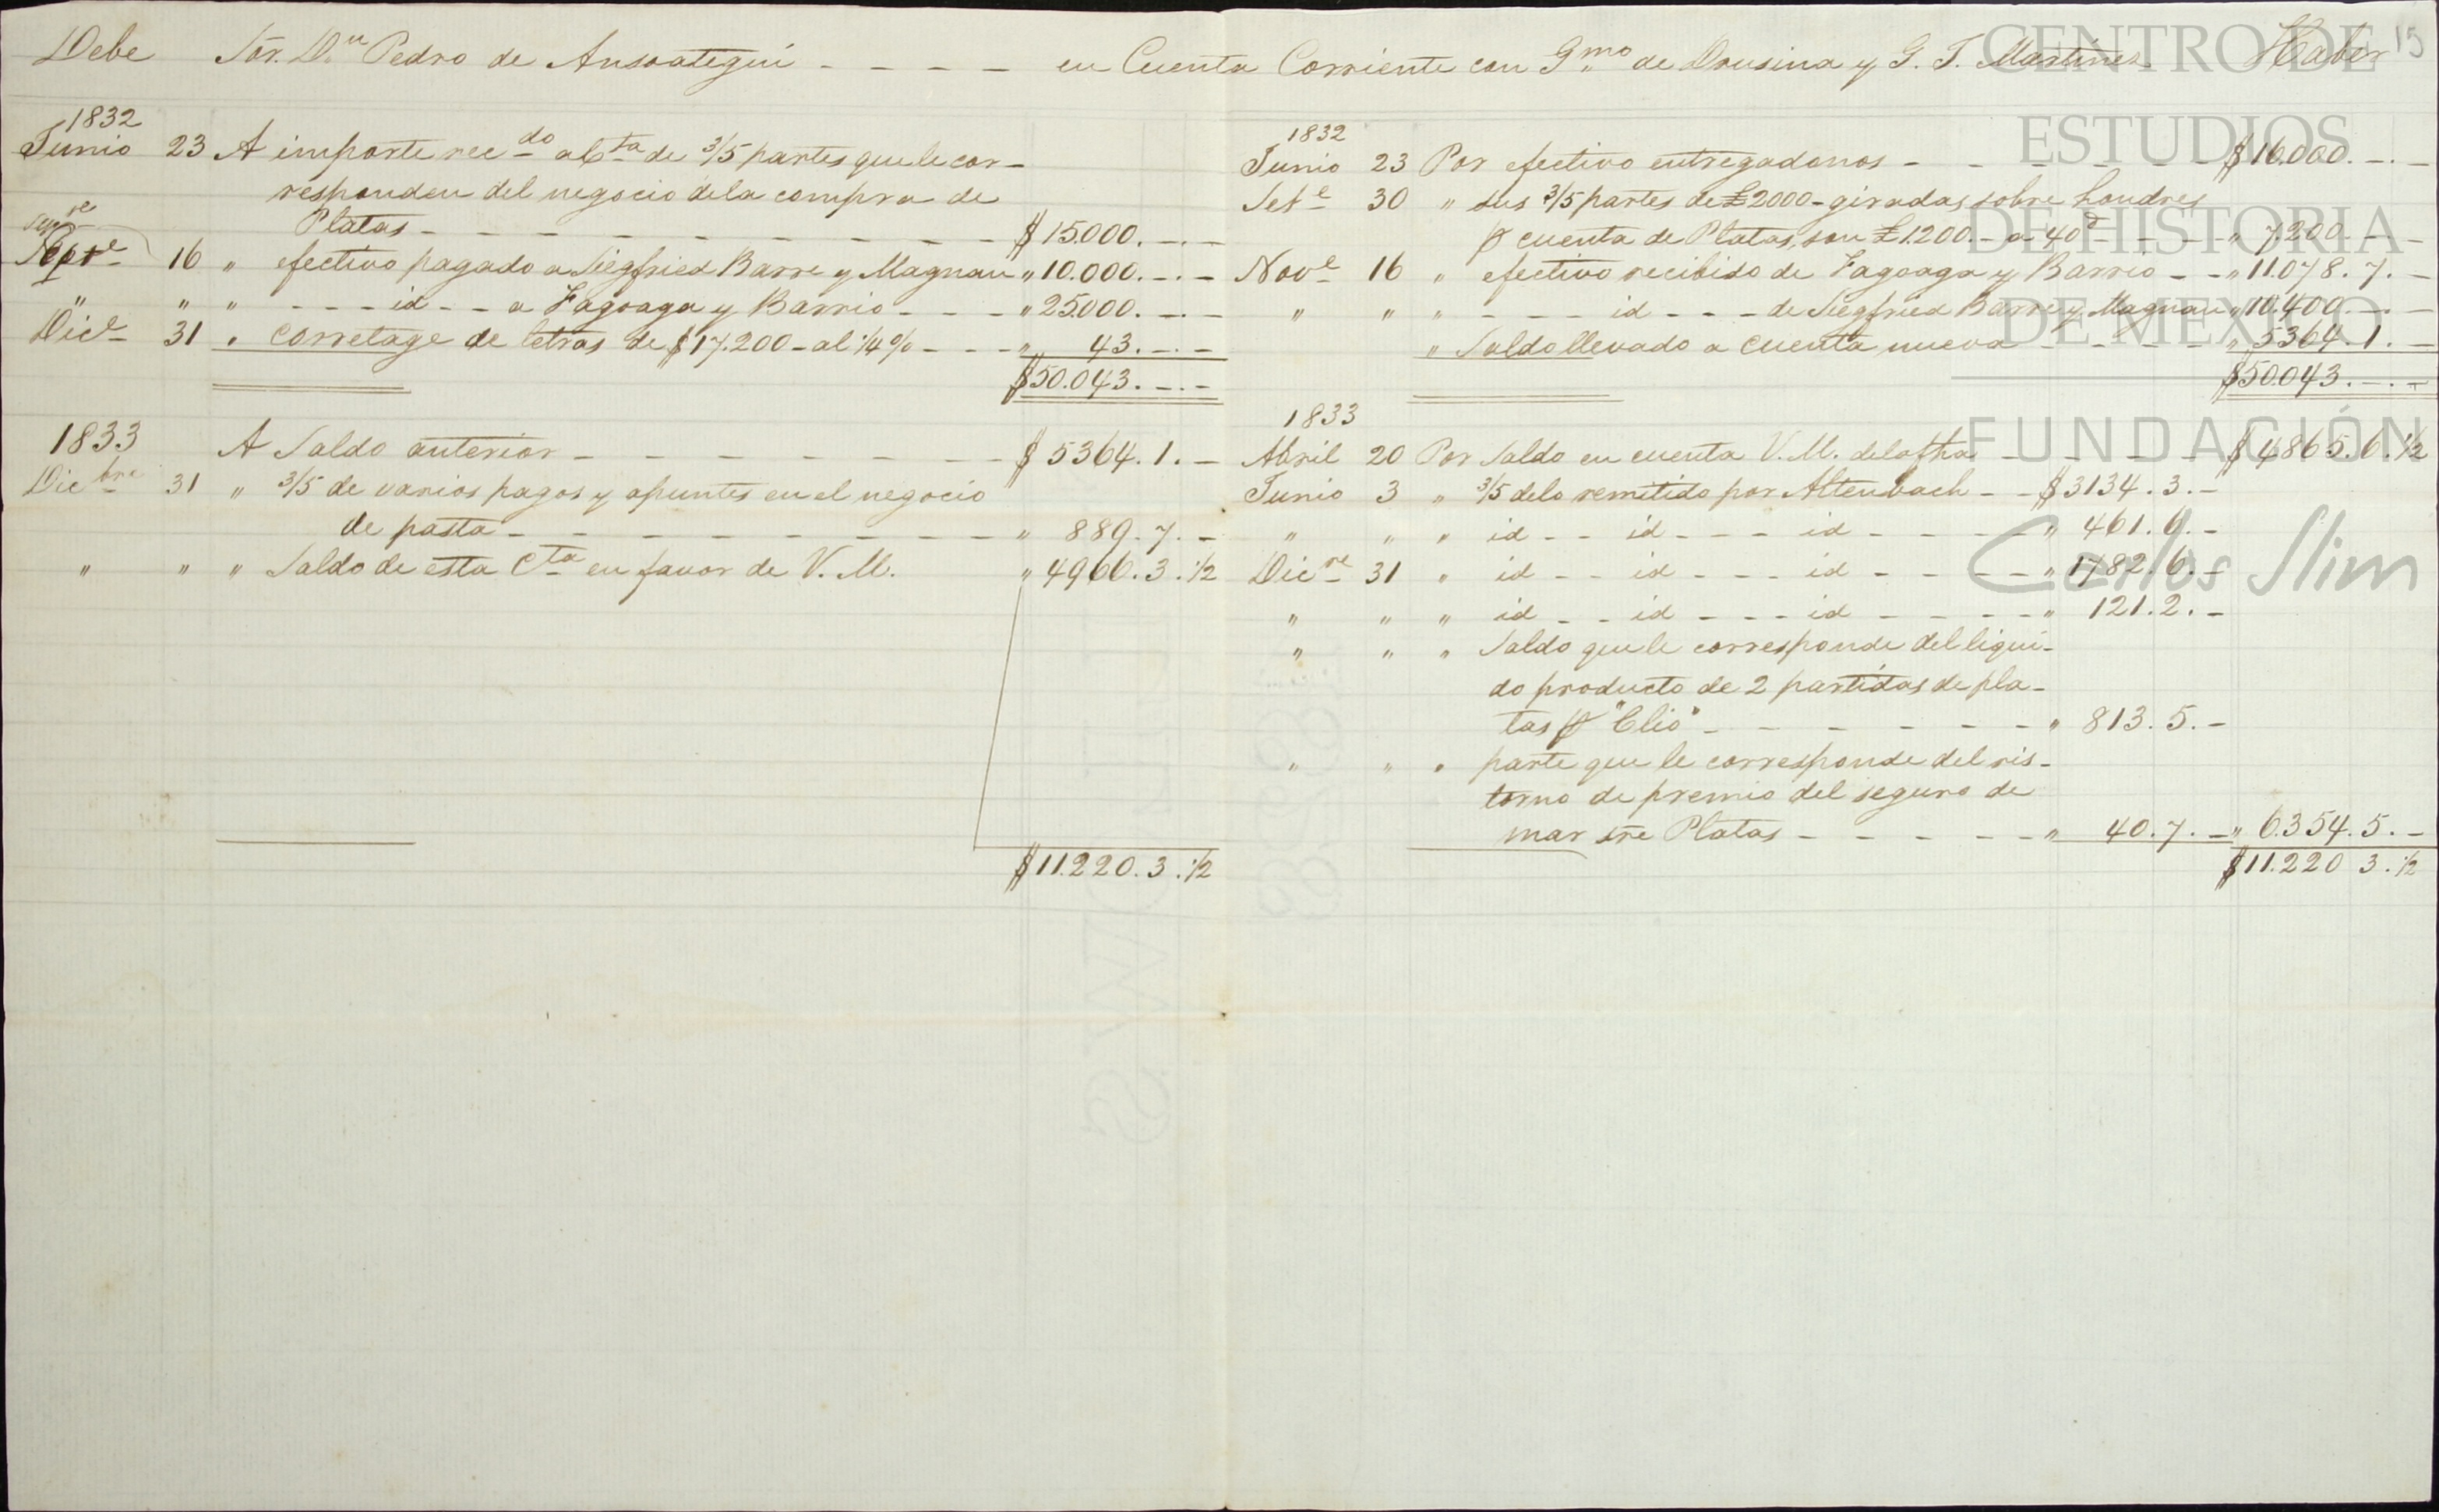 Debe Sōr. Dn Pedro de Ansoategui - - - - en Cuenta Corriente con Gmo de Drusina y G. J. Martinez Haber 15
1832
Junio 23 A importe recdo a Cta de 3/5 partes que le cor-
responden del negocio dela compra de
Platas - - - - - - - - - $ 15.000. -. -
Sepre
16 " efectivo pagado a Siegfried Barre y Magnau " 10.000. -. -
" " " - - - id - - a Fagoaga y Barrio - - - " 25.000. -. -
Dice 31 " corretage de letras de $ 17.200 - al 1/4 % - - - " 43. -. -
$ 50.043. -. -
1833 A Saldo anterior - - - - - - - $ 5364. 1. -
Dicbre 31 " 3/5 de varios pagos y apuntes en el negocio
de pasta - - - - - - - - - " 889. 7. -
" " " Saldo de esta Cta en favor de V. M. " 4966. 3. 1/2
$ 11.220. 3. 1/2
1832
Junio 23 Por efectivo entregadonos - - - - - - $ 16.000. -. -
Sete 30 " sus 3/5 partes de £ 2000 - giradas sobre Londres
p cuenta de Platas, son £ 1.200. - a 40d - - - " 7.200. - -
Nove 16 " efectivo recibido de Fagoaga y Barrio - - " 11.078. 7. -
" " " - - - id - - - de Siegfried Barre y Magnau " 10.400. -. -
" Saldo llevado a cuenta nueva - - - - - " 5364. 1. -
$ 50.043. -. -
1833
Abril 20 Por Saldo en cuenta V. M. dela fha - - - - $ 4865. 6. 1/2
Junio 3 " 3/5 delo remitido por Altenbach - - $ 3134. 3. -
" " " id - - id - - - id - - - - - " 461. 6. -
Dicre 31 " id - - id - - - id - - - - - " 1782. 6. -
" " " id - - id - - - id - - - - - " 121. 2. -
" " " Saldo que le corresponde del liqui-
do producto de 2 partidas de pla-
tas p "Clio" - - - - - - - " 813. 5. -
" " " parte que le corresponde del ris-
torno de premio del seguro de
mar sre Platas - - - - - " 40. 7. - " 6.354. 5. -
$ 11.220 3. 1/2
CENTRO DE
ESTUDIOS
DE HISTORIA
DE MEXICO
FUNDACIÓN
Carlos Slim